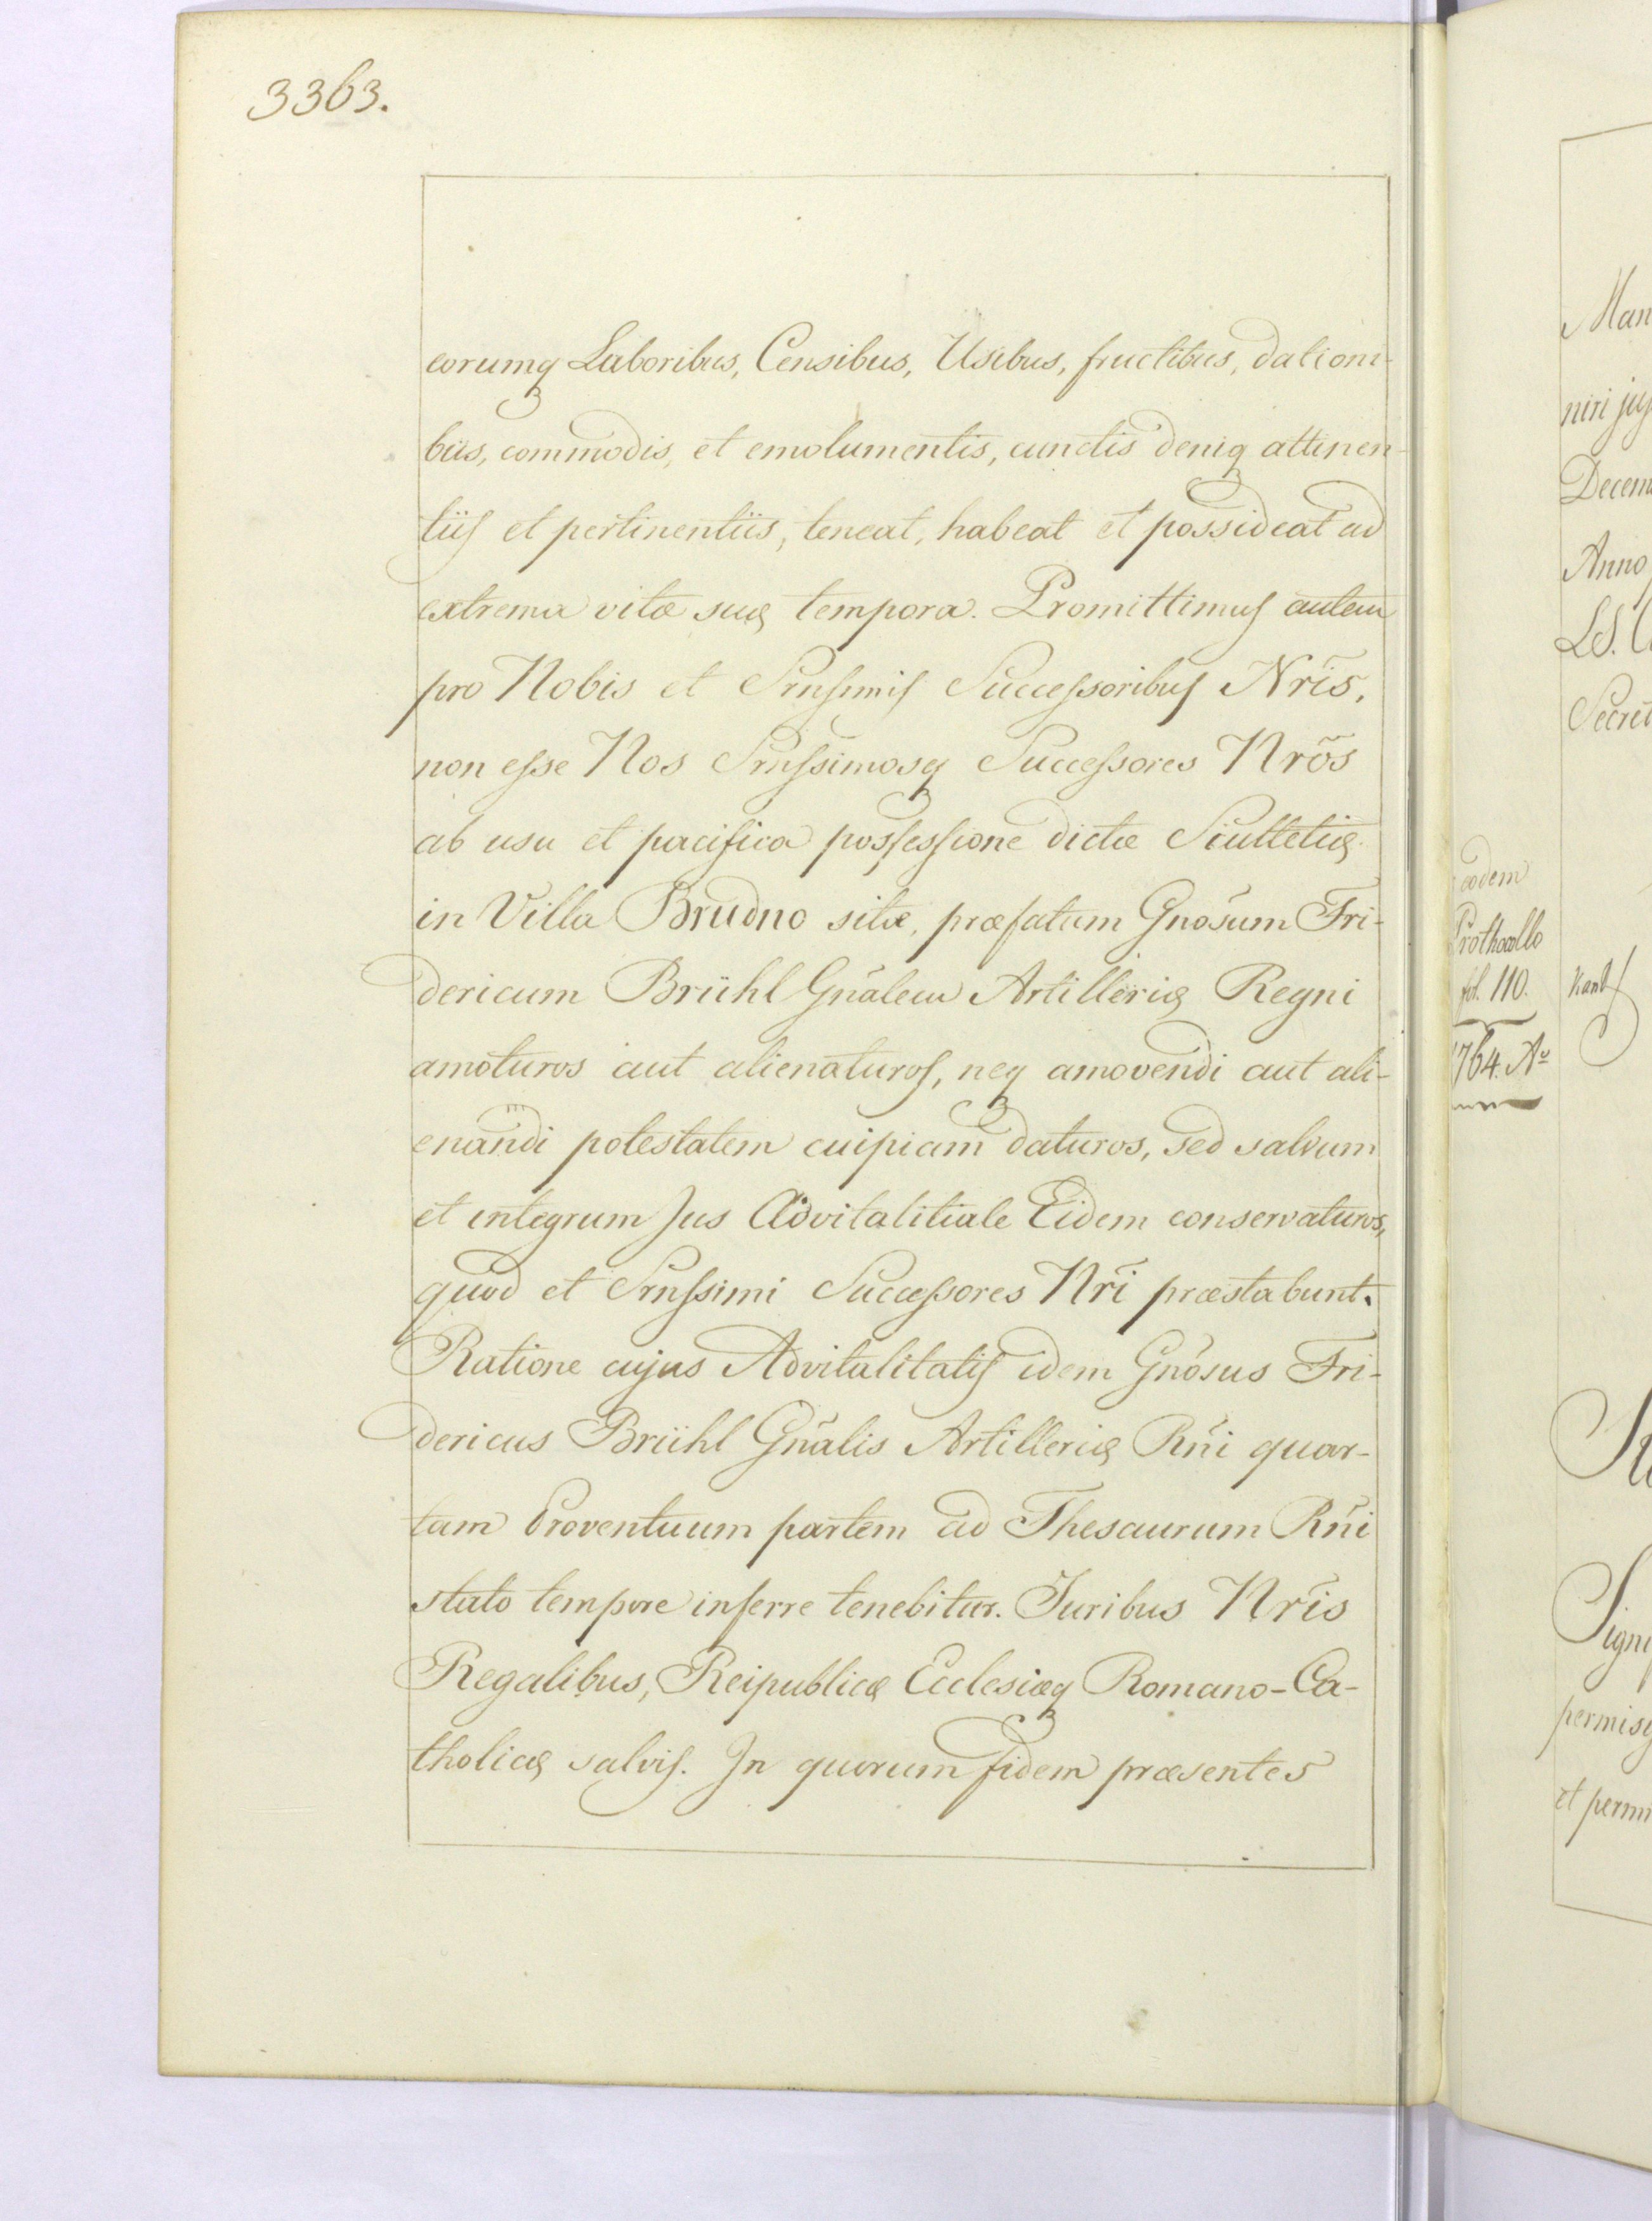 3363.
eorumq́ Laboribus, Censibus, Usibus, fructibus, dationi-
bus, commodis, et emolumentis, cunctis deniq́ attinen-
tiis et pertinentiis, teneat, habeat et possideat ad
extrema vitæ suæ tempora. Promittimus autem
pro Nobis et Srnssimis Successoribus Nr̃is,
non esse Nos Srnssimosq́ Successores Nrõs
ab usu et pacifica possessione dictæ Scultetiæ
in Villa Brudno sitæ, præfatum Gnõsum Fri-
dericum Brühl Gnãlem Artilleriæ Regni
amoturos aut alienaturos, neq́ amovendi aut ali-
enandi potestatem cuipiam daturos, sed salvum
et integrum Jus Advitalitiale Eidem conservaturos,
quod et Srnssimi Successores Nrĩ præstabunt.
Ratione cujus Advitalitatis idem Gnõsus Fri-
dericus Brühl Gnãlis Artilleriæ Rñi quar-
tam Proventuum partem ad Thesaurum Rñi
stato tempore inferre tenebitur. Juribus Nrĩs
Regalibus, Reipublicæ Ecclesiæq́ Romano-Ca-
tholicæ salvis. In quorum fidem præsentes
eodem
Prothocollo
fol. 110.
1764. Aº
Man
niri jus
Decem
Anno
LS.
Secret
Sign
permis
et permi